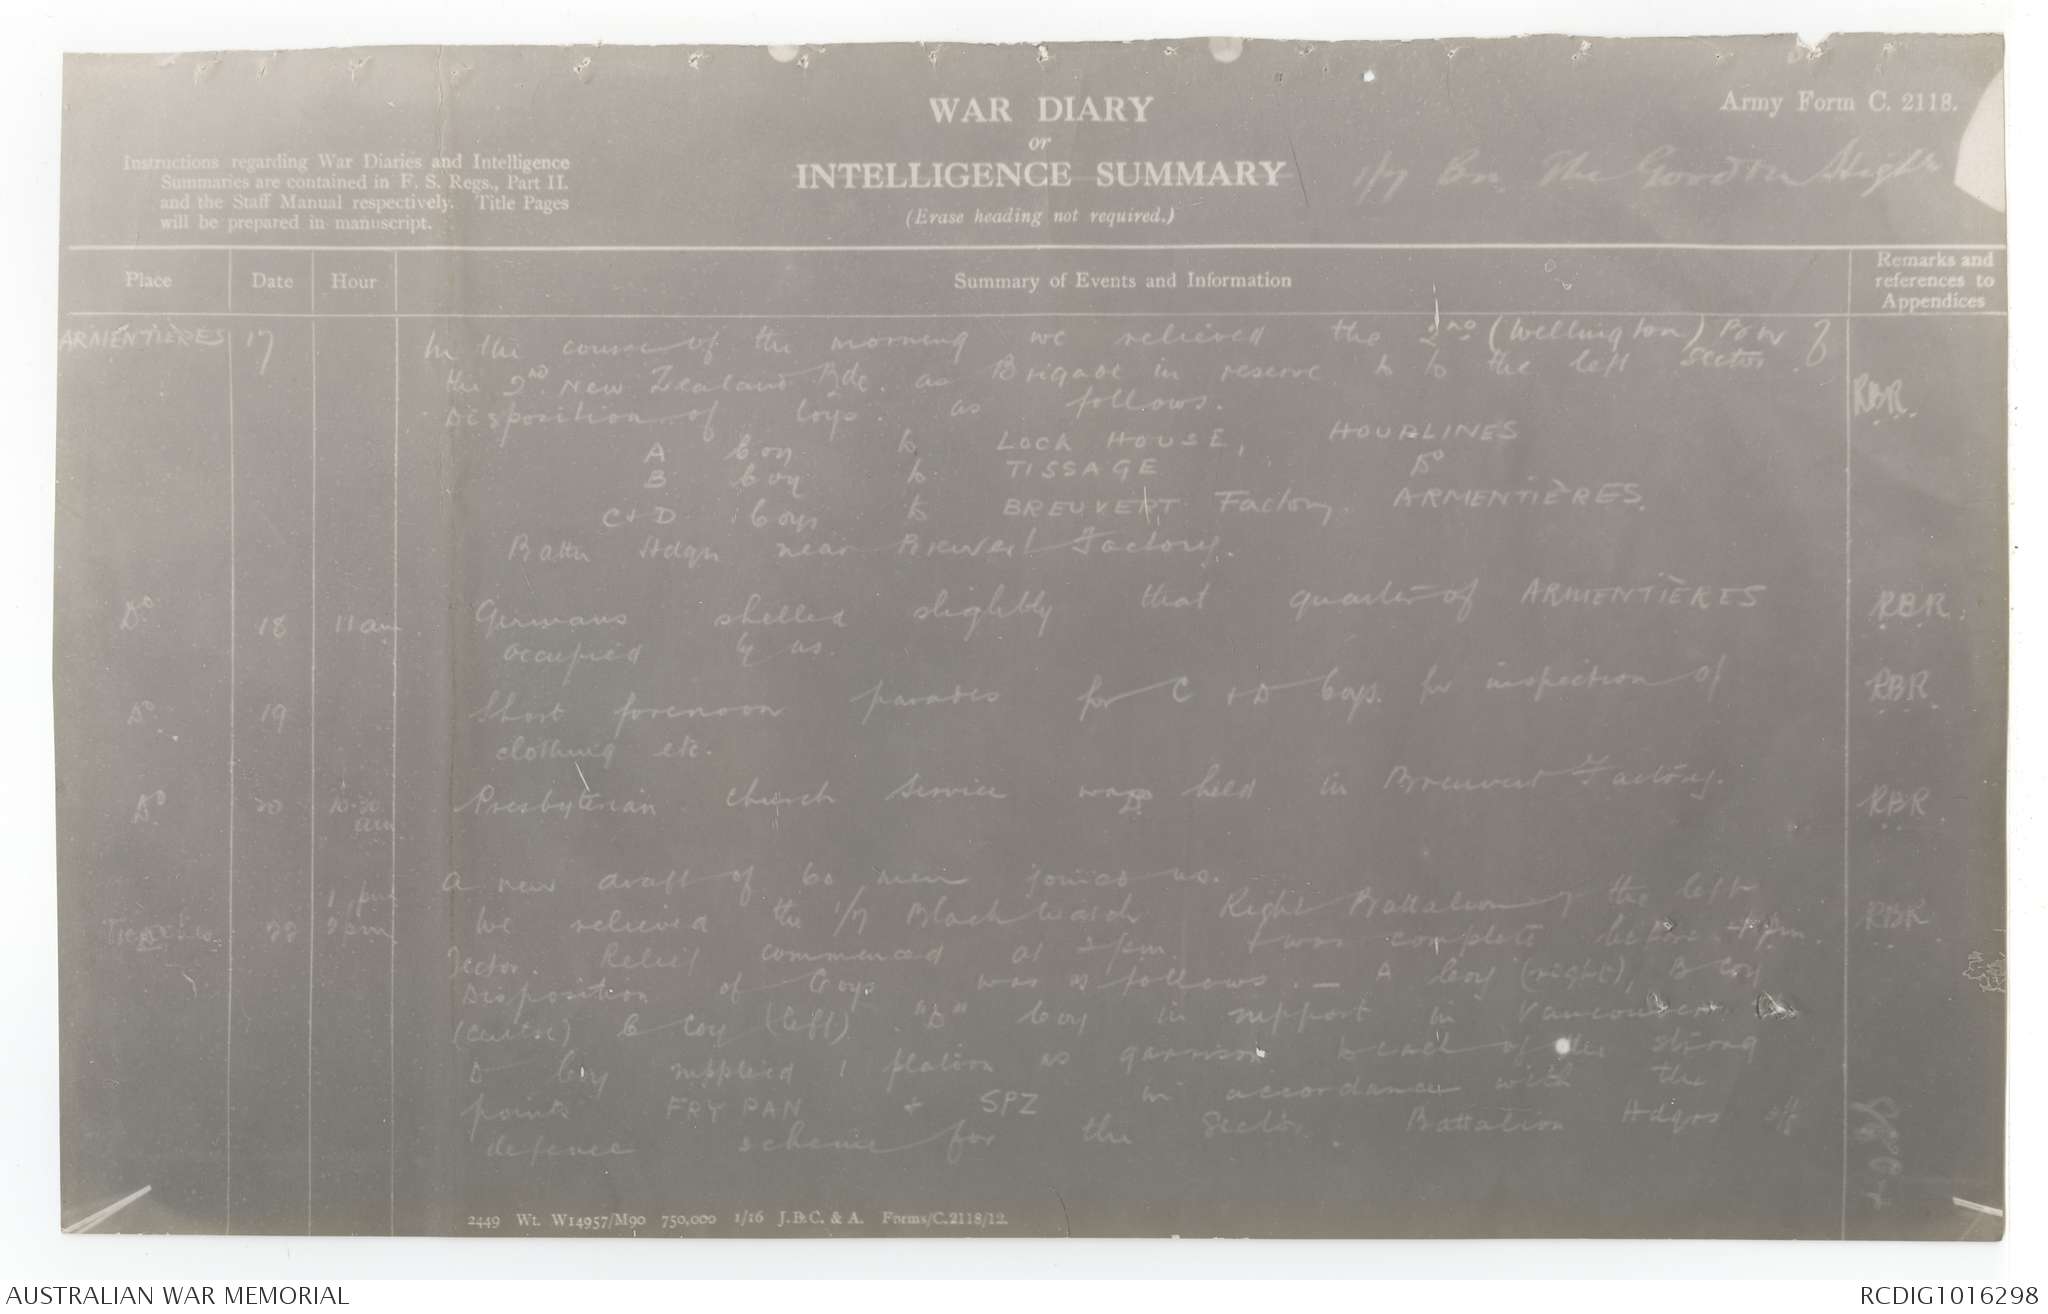 Army Form C. 2118.
WAR DIARY
or
INTELLIGENCE SUMMARY
(Erase heading not required.)
1/7 Bn. The Gordon Highrs
Instructions regarding War Diaries and Intelligence
Summaries are contained in F. S. Regs., Part II.
and the Staff Manual respectively. Title Pages
will be prepared in manuscript.
Place Date Hour Summary of Events and Information Remarks and references to Appendices
ARMENTIÈRES 17 In the course of the morning we relieved the 2nd (Wellington) Bn of
the 2nd New Zealand Bde. as Brigade in reserve to the left Sector. RBR.
Disposition of Coys. as follows.
A Coy to LOCK HOUSE, HOUPLINES
B Coy to TISSAGE Do
C & D Coys to BREUVERT Factory. ARMENTIÈRES.
Battn Hdqrs near Breuvert Factory.
Do 18 11 am Germans shelled slightly that quarter of ARMENTIÈRES RBR.
occupied by us.
Do 19 Short forenoon parades for C & D Coys. for inspection of RBR.
clothing etc.
Do 20 10.30 am Presbyterian church service was held in Breuvert Factory. RBR.
1 pm A new draft of 60 men joined us.
Trenches 22 2 pm We relieved the 1/7 Black Watch Right Battalion of the left RBR
Sector. Relief commenced at 2 pm & was complete before 4 pm.
Disposition of Coys was as follows. — A Coy (right), B Coy
(centre) C Coy (left). "D" Coy in support in Vancouver
D Coy supplied 1 platoon as garrison to each of the strong
points FRY PAN & SPZ in accordance with the
defence scheme for the Sector. Battalion Hdqrs off
2449 Wt. W14957/M90 750,000 1/16 J.B.C. & A. Forms/C.2118/12.
AUSTRALIAN WAR MEMORIAL
RCDIG1016298